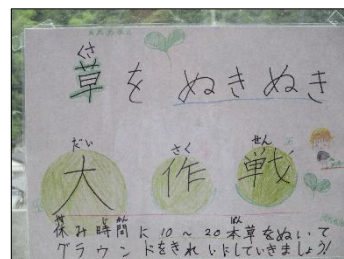 草を ぬきぬき
大作戦
休み時間に10～20本草をぬいて
グラウンドをきれいにしていきましょう!